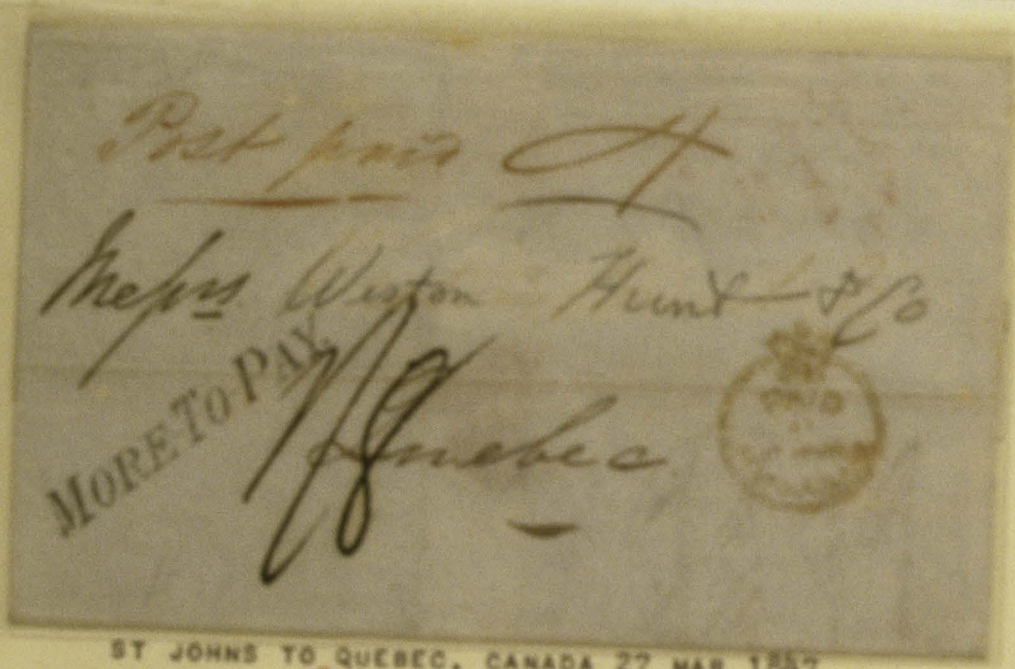 Post paid
Messrs Weston Hunt & Co
MORE-TO-PAY
1/8
Quebec
PAID
ST JOHNS TO QUEBEC, CANADA 27 MAR